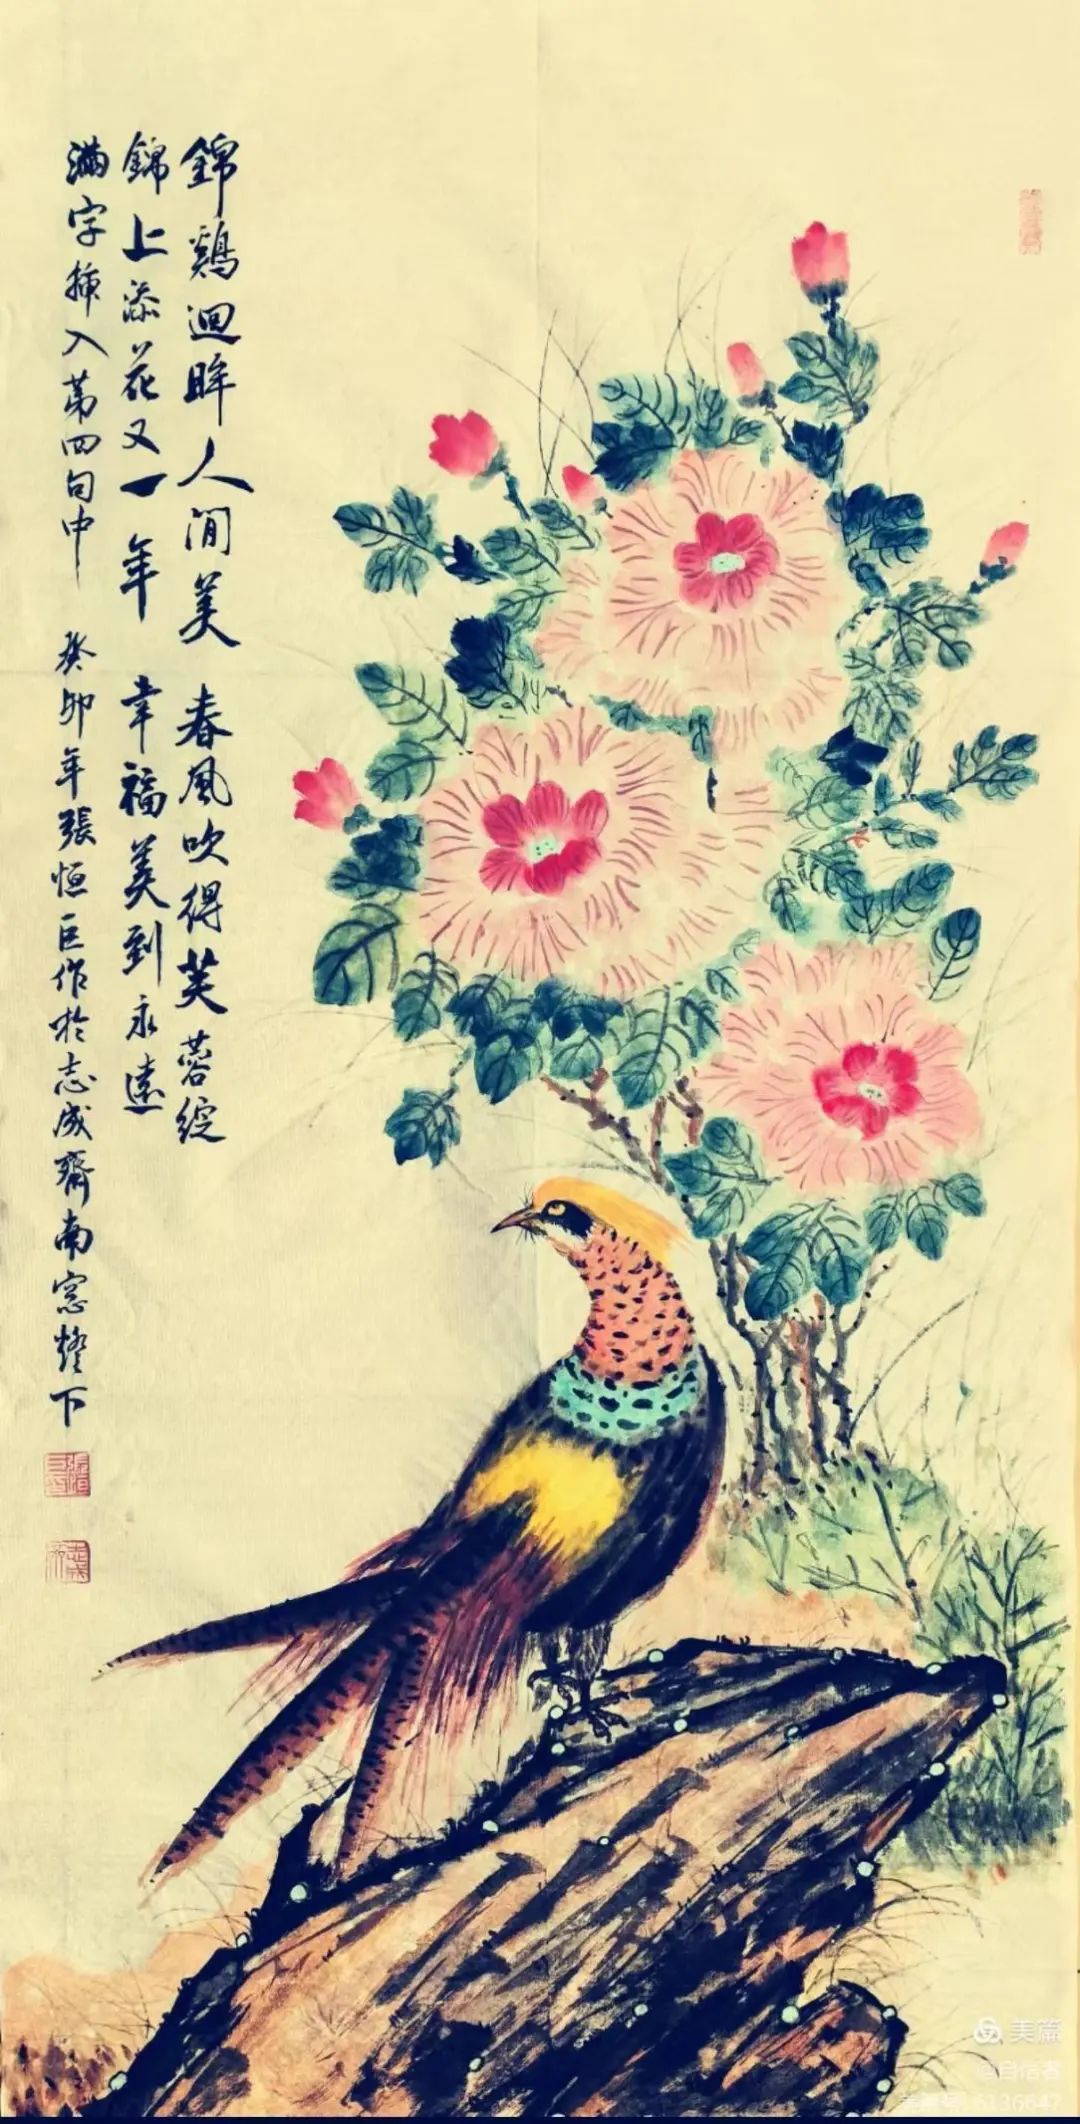 錦鷄迴眸人间美 春風吹得芙蓉綻
錦上添花又一年 幸福美到永遠
滿字揷入苐四句中 癸卯年張恒巨作於志成齋南窓燈下
美篇
@自信者
美篇号 6136647